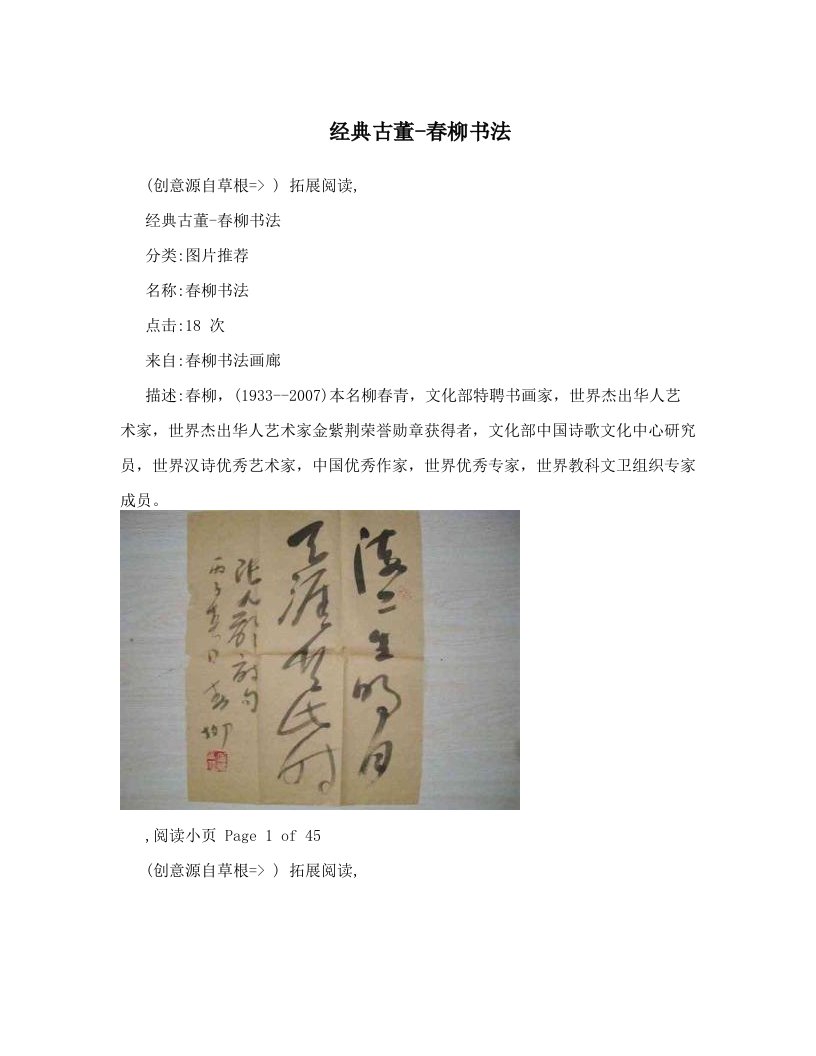 经典古董-春柳书法
(创意源自草根=> ) 拓展阅读,
经典古董-春柳书法
分类:图片推荐
名称:春柳书法
点击:18 次
来自:春柳书法画廊
描述:春柳，(1933--2007)本名柳春青，文化部特聘书画家，世界杰出华人艺
术家，世界杰出华人艺术家金紫荆荣誉勋章获得者，文化部中国诗歌文化中心研究
员，世界汉诗优秀艺术家，中国优秀作家，世界优秀专家，世界教科文卫组织专家
成员。
海上生明月
天涯共此时
张九龄诗句
丙子春日 春柳
,阅读小页 Page 1 of 45
(创意源自草根=> ) 拓展阅读,